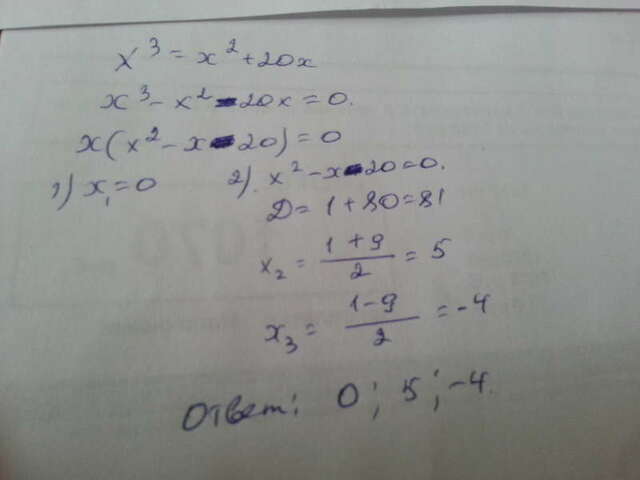 x³ = x² + 20x
x³ - x² - 20x = 0.
x(x² - x - 20) = 0
1) x₁ = 0 2). x² - x - 20 = 0.
D = 1 + 80 = 81
x₂ = (1 + 9)/2 = 5
x₃ = (1 - 9)/2 = -4
Ответ: 0; 5; -4.